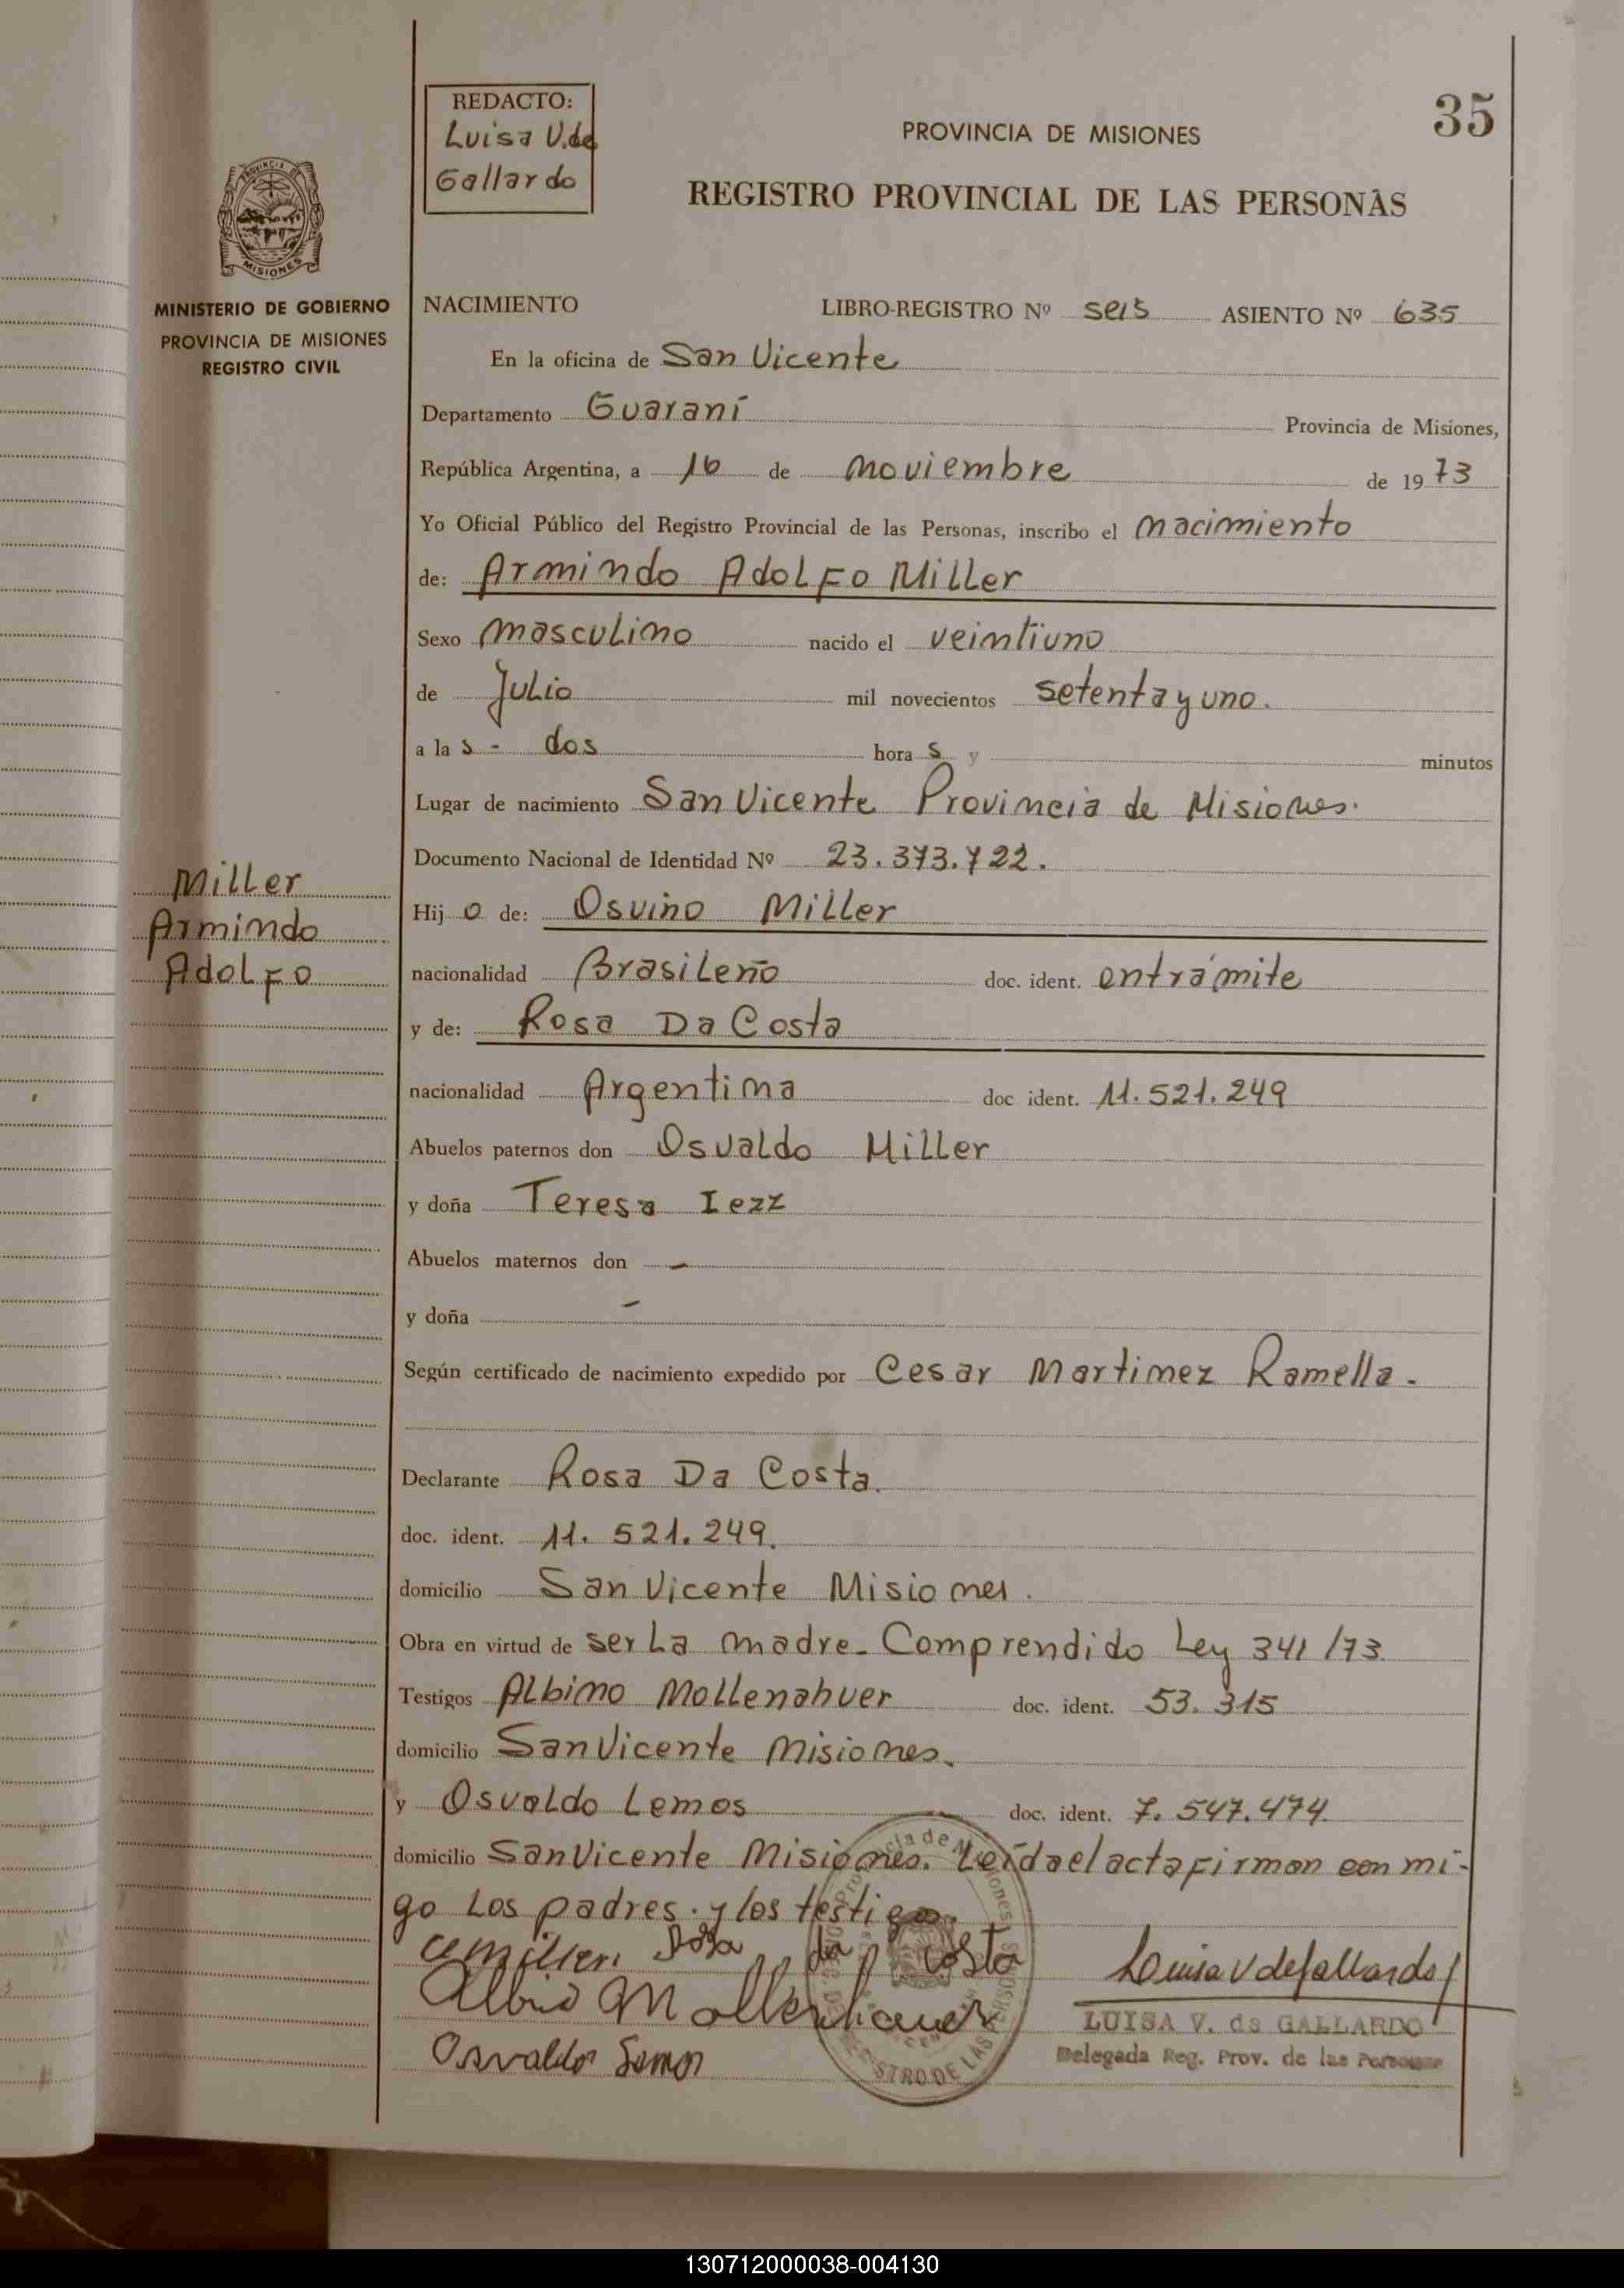 35
REDACTO:
Luisa V. de
Gallardo
PROVINCIA DE MISIONES
REGISTRO PROVINCIAL DE LAS PERSONAS
PROVINCIA DE
MISIONES
MINISTERIO DE GOBIERNO
PROVINCIA DE MISIONES
REGISTRO CIVIL
NACIMIENTO LIBRO-REGISTRO Nº seis ASIENTO Nº 635
En la oficina de San Vicente
Departamento Guaraní Provincia de Misiones,
República Argentina, a 16 de noviembre de 1973
Yo Oficial Público del Registro Provincial de las Personas, inscribo el nacimiento
de: Armindo Adolfo Miller
Sexo masculino nacido el veintiuno
de Julio mil novecientos setenta y uno.
a la s - dos hora s y minutos
Lugar de nacimiento San Vicente Provincia de Misiones.
Documento Nacional de Identidad Nº 23.373.722.
Miller
Armindo
Adolfo
Hij o de: Osvino Miller
nacionalidad Brasileño doc. ident. en trámite
y de: Rosa Da Costa
nacionalidad Argentina doc ident. 11.521.249
Abuelos paternos don Osvaldo Miller
y doña Teresa Iezz
Abuelos maternos don -
y doña -
Según certificado de nacimiento expedido por Cesar Martinez Ramella.
Declarante Rosa Da Costa.
doc. ident. 11.521.249.
domicilio San Vicente Misiones.
Obra en virtud de ser La madre - Comprendido Ley 341/73.
Testigos Albino Mollenahuer doc. ident. 53.315
domicilio San Vicente Misiones.
y Osvaldo Lemos doc. ident. 7.547.474.
domicilio San Vicente Misiones. Leída el acta firman con mi-
go Los padres. y los testigos.
Rosa da Costa
Albino Mollenhauer
Osvaldo Lemos
Luisa V de Gallardo
LUISA V. de GALLARDO
Delegada Reg. Prov. de las Personas
130712000038-004130